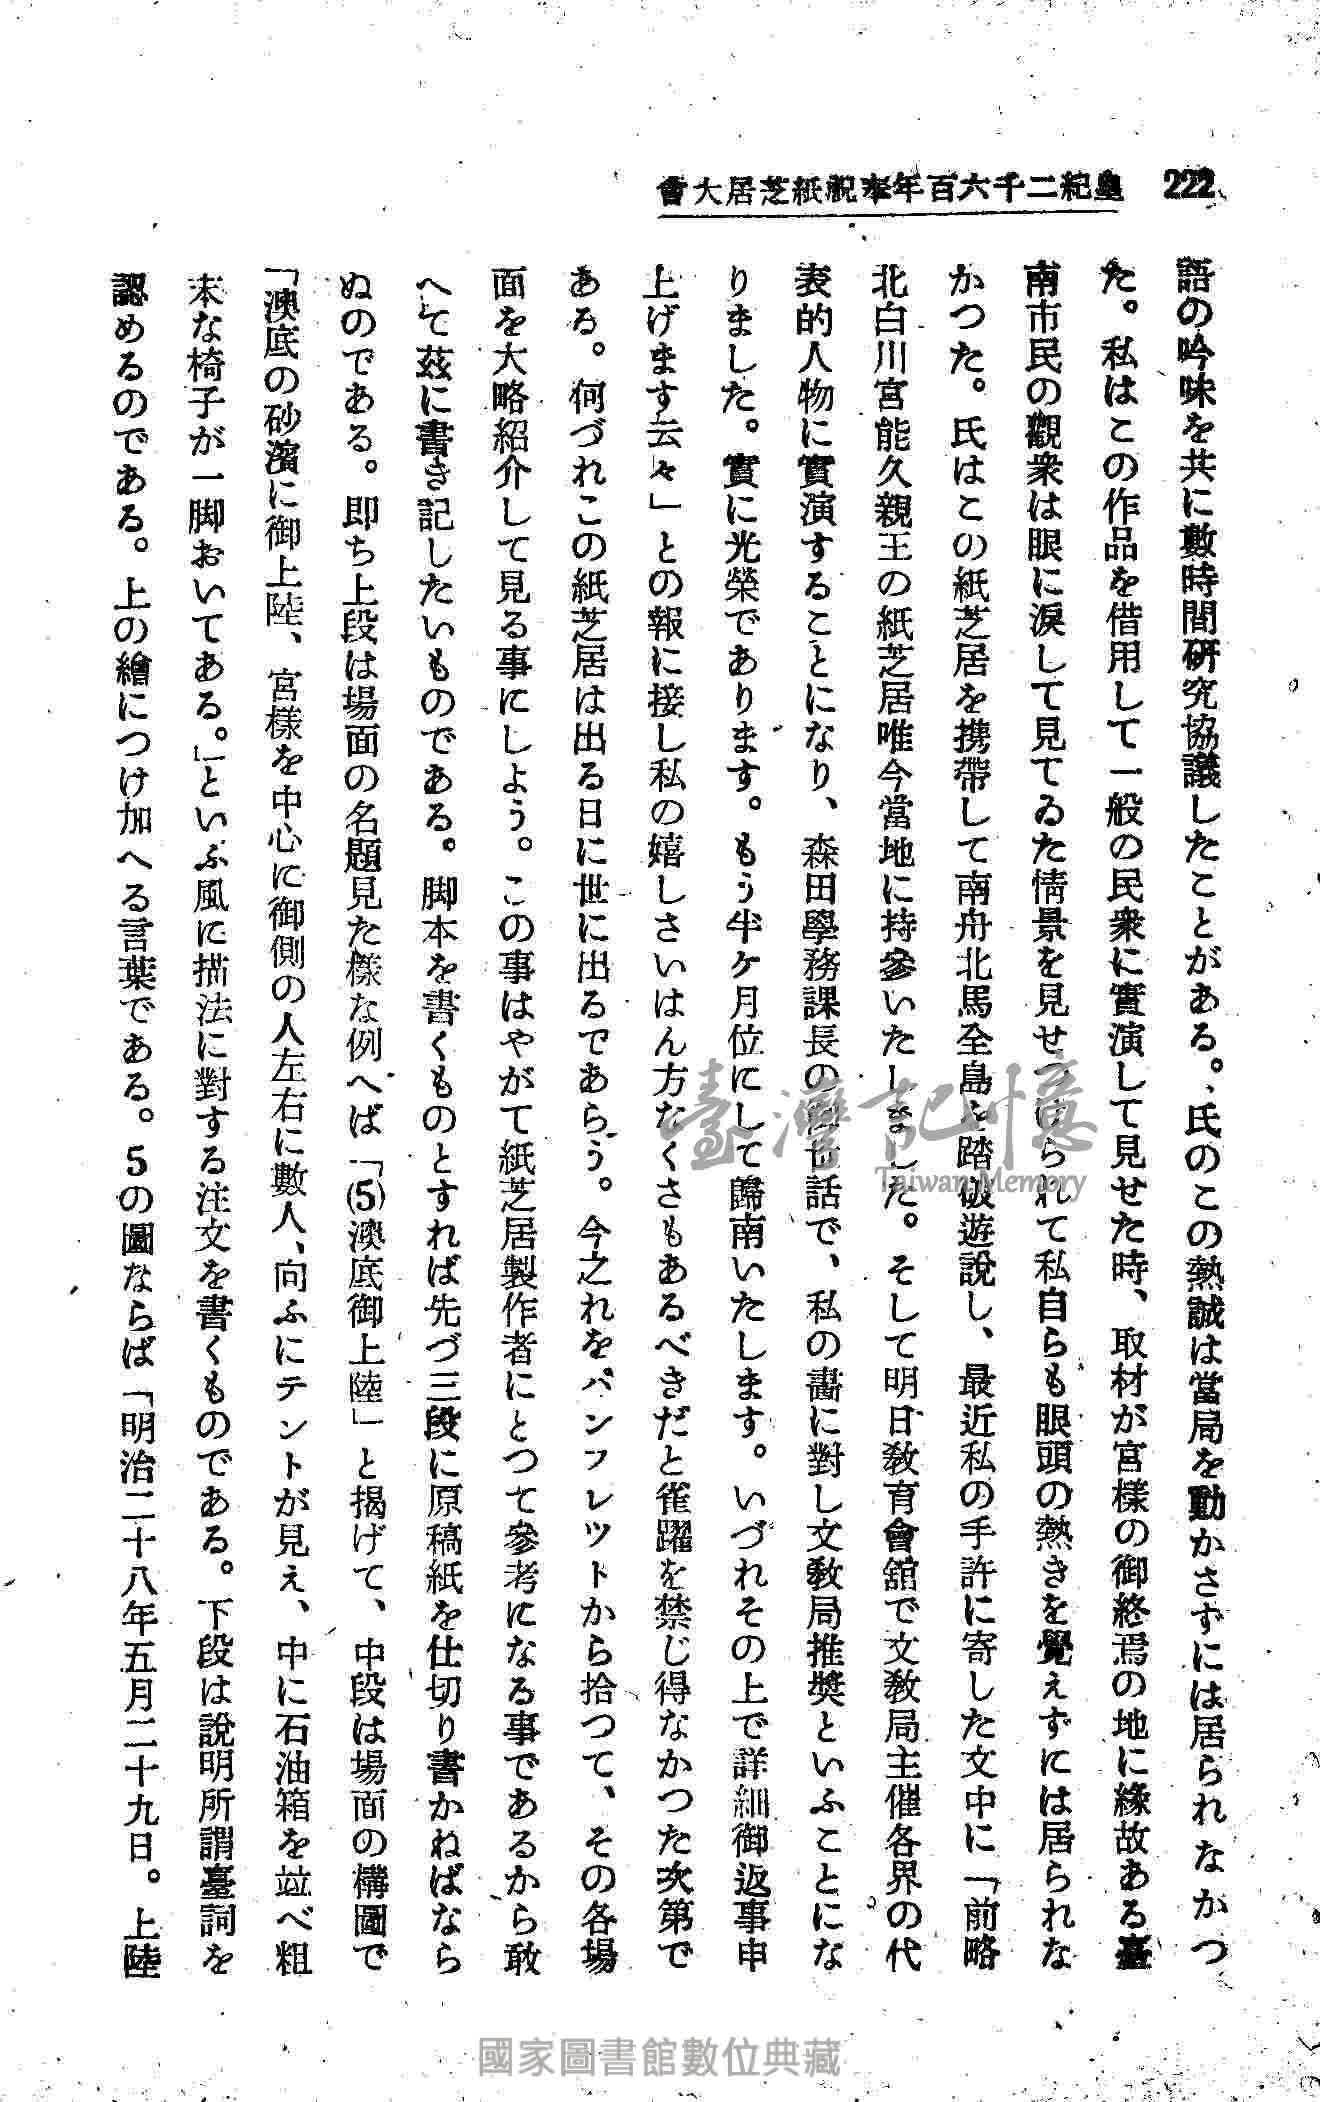 222
會大居芝紙祝奉年百六千二紀皇
語の吟味を共に數時間研究協議したことがある。氏のこの熱誠は當局を動かさずには居られなかつ
た。私はこの作品を借用して一般の民衆に實演して見せた時、取材が宮樣の御終焉の地に緣故ある臺
南市民の觀衆は眼に淚して見てゐた情景を見せつけられて私自らも眼頭の熱きを覺えずには居られな
かつた。氏はこの紙芝居を携帶して南舟北馬全島を踏破遊說し、最近私の手許に寄した文中に「前略
北白川宮能久親王の紙芝居唯今當地に持參いたしました。そして明日敎育會館で文敎局主催各界の代
表的人物に實演することになり、森田學務課長の御世話で、私の畵に對し文敎局推奬といふことにな
りました。實に光榮であります。もう半ケ月位にして歸南いたします。いづれその上で詳細御返事申
上げます云々」との報に接し私の嬉しさいはん方なくさもあるべきだと雀躍を禁じ得なかつた次第で
ある。何づれこの紙芝居は出る日に世に出るであらう。今之れをパンフレツトから拾つて、その各場
面を大略紹介して見る事にしよう。この事はやがて紙芝居製作者にとつて參考になる事であるから敢
へて茲に書き記したいものである。脚本を書くものとすれば先づ三段に原稿紙を仕切り書かねばなら
ぬのである。即ち上段は場面の名題見た樣な例へば「(5)澳底御上陸」と揭げて、中段は場面の構圖で
「澳底の砂濱に御上陸、宮樣を中心に御側の人左右に數人、向ふにテントが見え、中に石油箱を竝べ粗
末な椅子が一脚おいてある。」といふ風に描法に對する注文を書くものである。下段は說明所謂臺詞を
認めるのである。上の繪につけ加へる言葉である。5の圖ならば「明治二十八年五月二十九日。上陸
臺灣記憶
Taiwan Memory
國家圖書館數位典藏